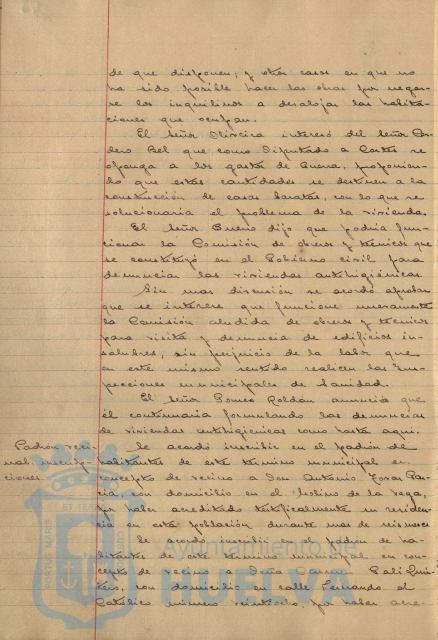 de que disponen; y otros casos en que no
ha sido posible hacer las obras por negar-
se los inquilinos a desalojar las habita-
ciones que ocupan.
El Señor Oliveira interesó del Señor Cor-
dero Bel que como Diputado a Cortes se
oponga a los gastos de Guerra, proponien-
do que estas cantidades se destinen a la
construcción de casas baratas, con lo que se
solucionaría el problema de la vivienda.
El Señor Bueno dijo que podría fun-
cionar la Comisión de obreros y técnicos que
se constituyó en el Gobierno civil para
denunciar las viviendas antihigiénicas
Sin mas discusión se acordó aprobar
que se interese que funcione nuevamente
la Comisión aludida de obreros y técnicos
para visita y denuncia de edificios in-
salubres, sin perjuicio de la labor que
en este mismo sentido realicen las Ins-
pecciones municipales de Sanidad.
El Señor Ponce Roldán anunció que
él continuaria formulando las denuncias
de viviendas antihigienicas como hasta aquí.
Padrón veci-
nal, inscrip-
ciones.
Se acordó inscribir en el padrón de
habitantes de este término municipal en
concepto de vecino a Don Antonio Tovar Gar-
cía, con domicilio en el Molino de la Vega,
por haber acreditado testificalmente su residen-
cia en esta población durante mas de seis meses
Se acordó inscribir en el padrón de ha-
bitantes de este término municipal en con-
cepto de vecino a Doña Carmen
con domicilio en calle Fernando el
Católico número veintiocho, por haber acre-
Ayuntamiento de
HUELVA